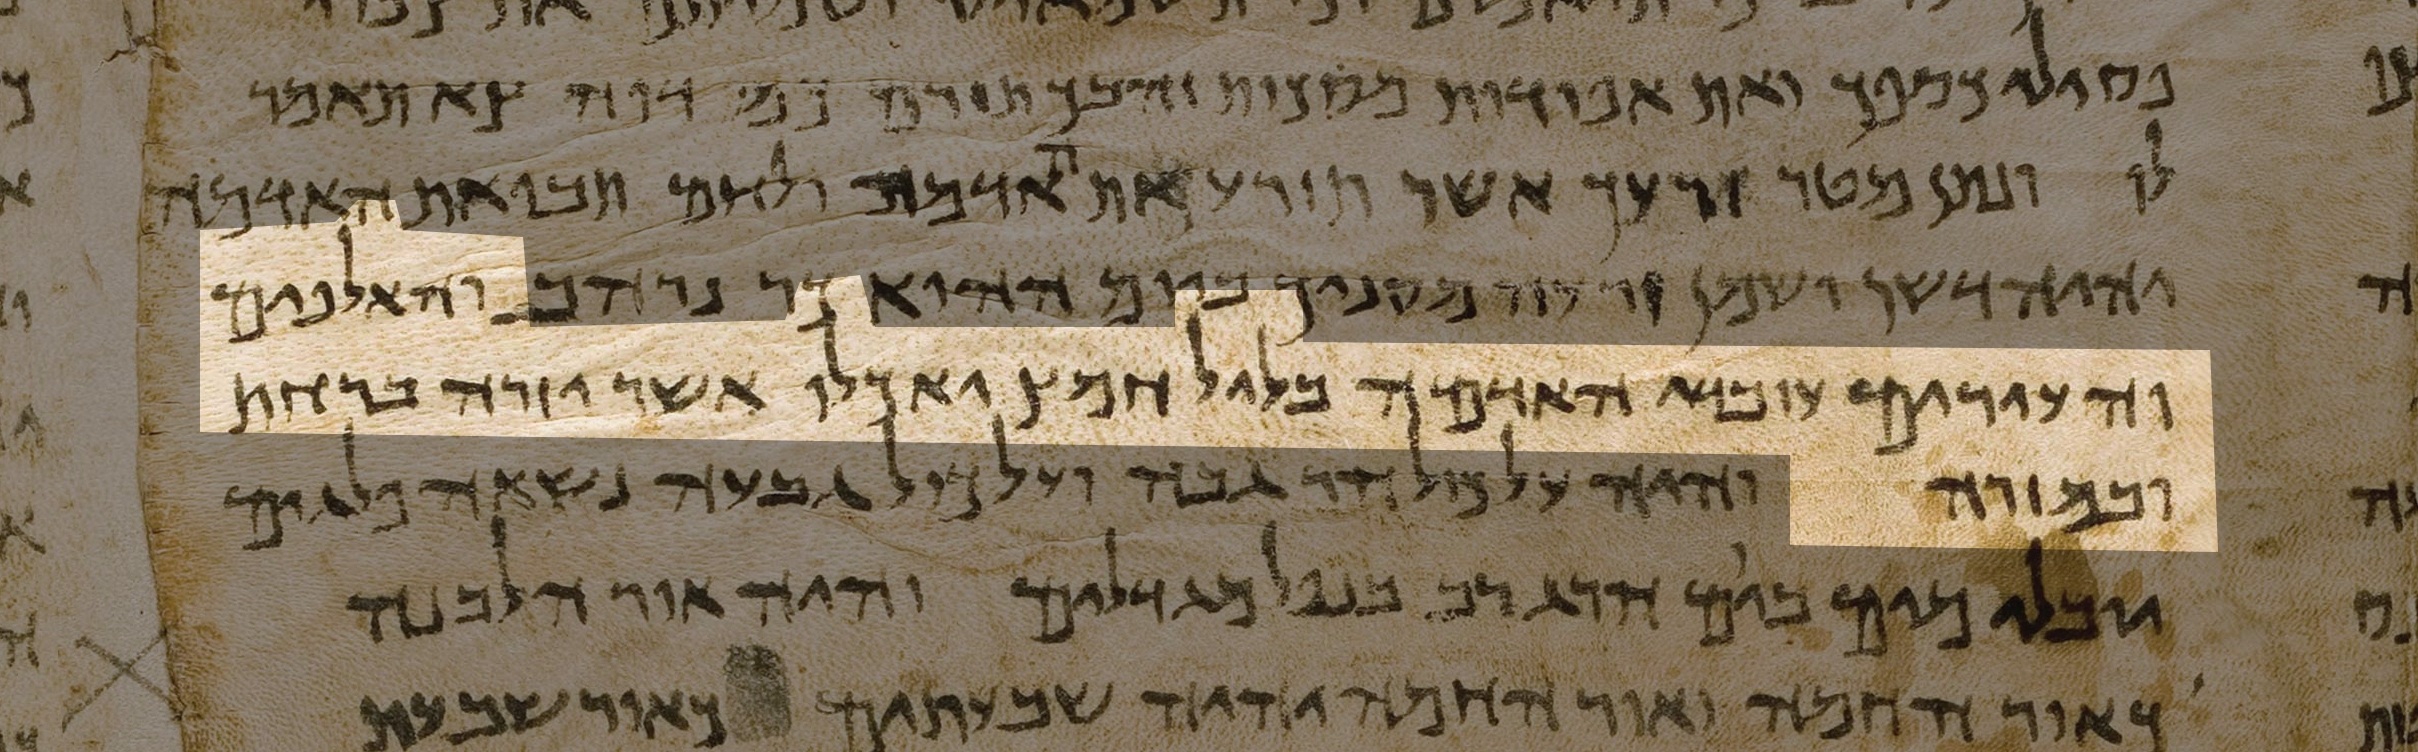 פסילי כספך ואת אפודות מסכות זהבך תזרם כמי דוה צא תאמר
לו ונתן מטר זרעך אשר תזרע את האדמה ולחם תבואת האדמה
והיה דשן ושמן ורעו מקניך ביום ההוא כר נרחב והאלפים
והעירים עובדי האדמה בליל חמיץ יאכלו אשר יזרה ברחת
ובמזרה והיה על כול הר גבה ועל כול גבעה נשאה פלגים
יבלי מים ביום הרג רב בנפל מגדלים והיה אור הלבנה
כאור החמה ואור החמה יהיה שבעתים כאור שבעת